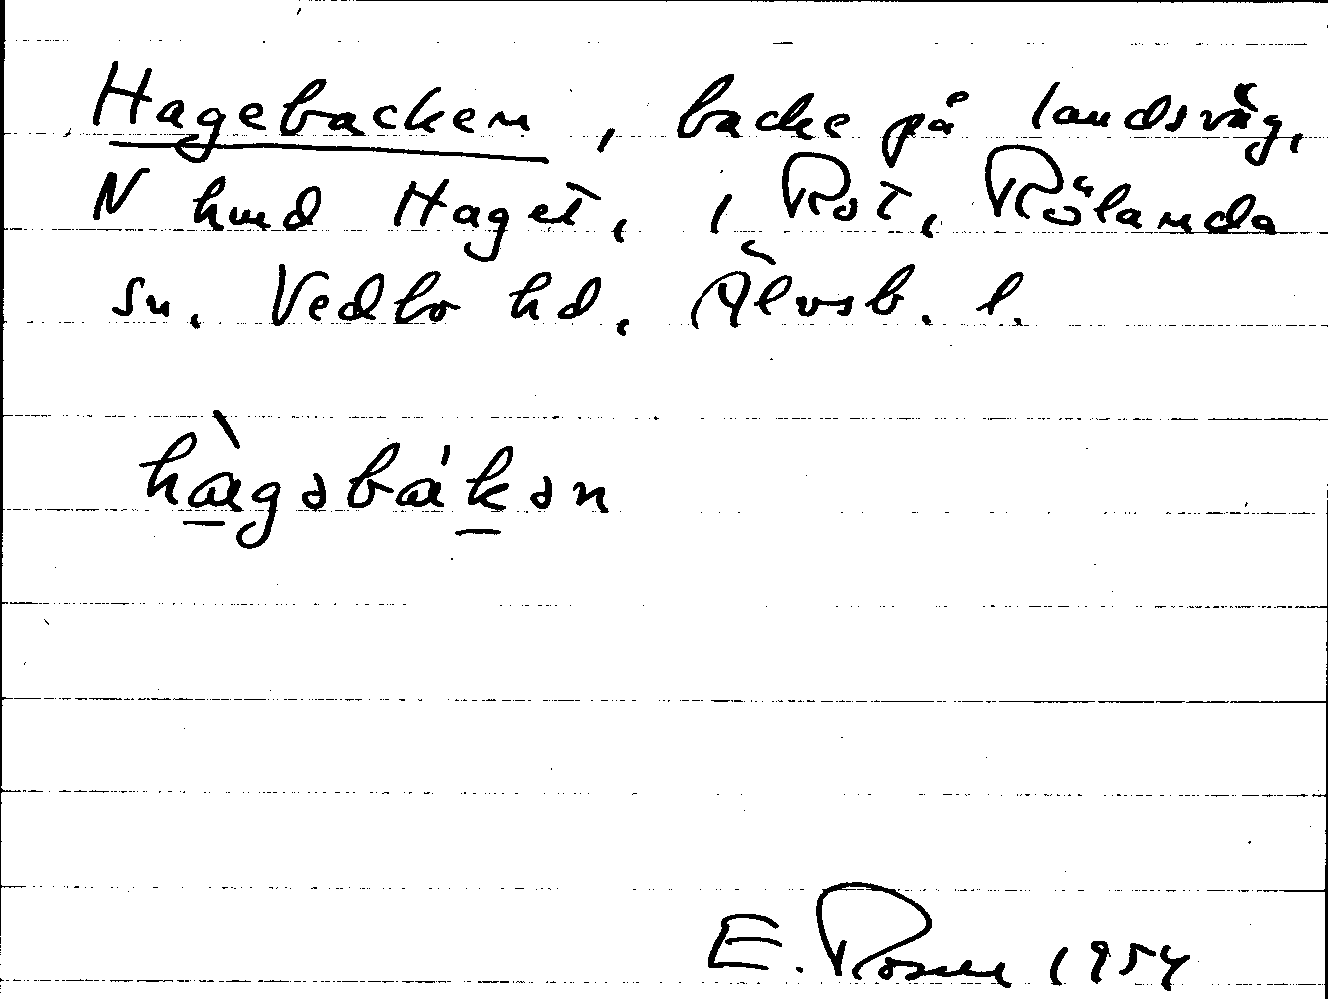 Hagebacken, backe på landsväg,
N hmd Haget, i Rot, Rölanda
sn. Vedbo hd, Älvsb. l.
hàgəbákən
E. Rosell 1954